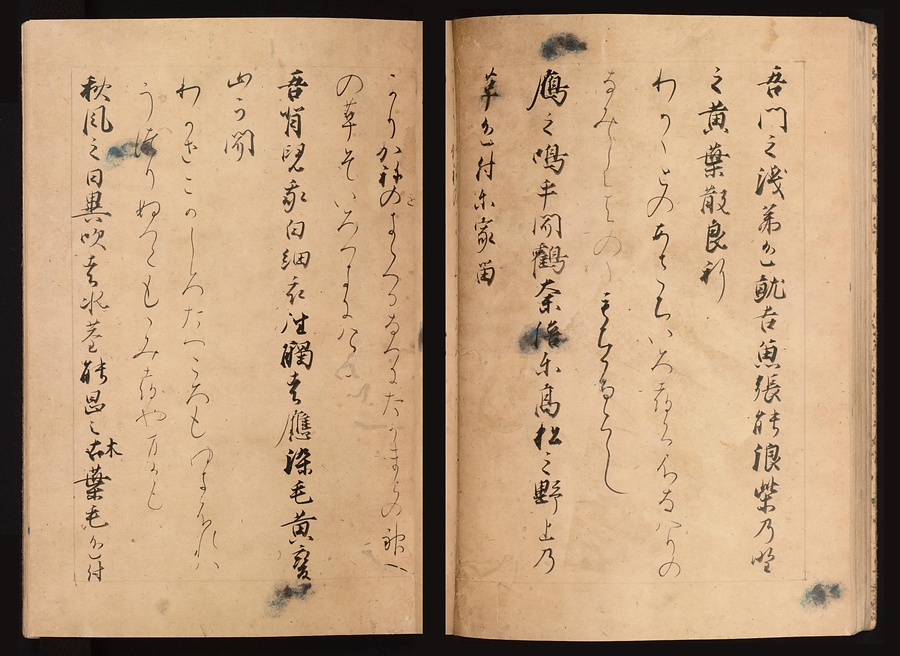 吾門之浅茅色就吉魚張能浪柴乃野
之黄葉散良新
わかゝとのあさちいろつくよなはりの
なみしはのゝもみちちるらし
鴈之鳴乎聞鶴奈倍尓高松之野上乃
草色付尓家留
かりかねのきゝつるなへにたかまつの野へ
の草そいろつきにける
吾背兒我白細衣徃觸者應染毛黄變
山可聞
わかせこかしろたへころもゆきふれは
うつりぬへくももみつや万かも
秋風之日異吹者水茎能岡之木葉毛色付